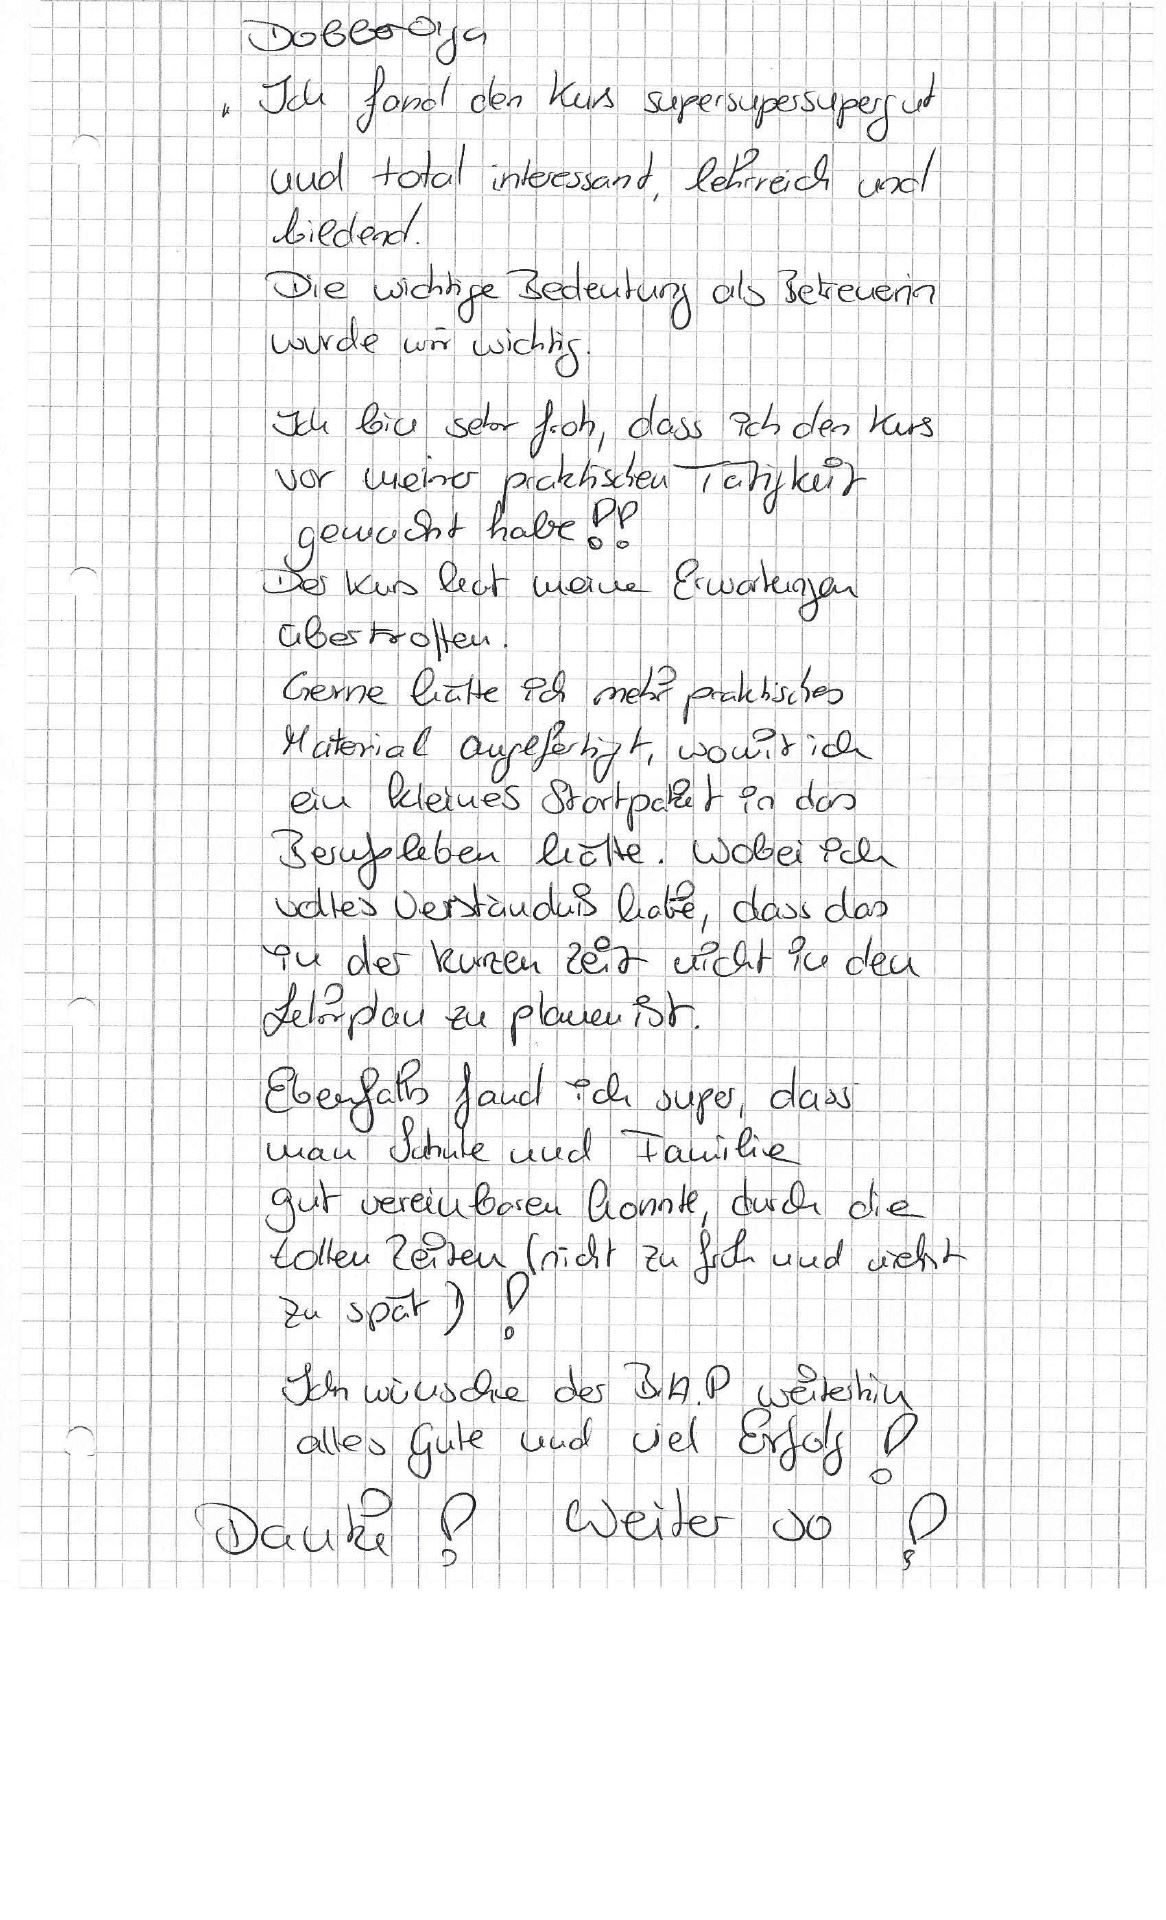 Dobber Oya
" Ich fand den Kurs supersupersupergut
und total interessant, lehrreich und
bildend.
Die wichtige Bedeutung als Betreuerin
wurde mir wichtig.
Ich bin sehr froh, dass ich den Kurs
vor meiner praktischen Tätigkeit
gemacht habe!!
Der Kurs hat meine Erwartungen
übertroffen.
Gerne hätte ich mehr praktisches
Material angefertigt, womit ich
ein kleines Startpaket in das
Berufsleben hätte. Wobei ich
volles Verständniß habe, dass das
in der kurzen Zeit nicht in den
Lehrplan zu planen ist.
Ebenfalls fand ich super, dass
man Schule und Familie
gut vereinbaren konnte, durch die
tollen Zeiten (nicht zu früh und nicht
zu spät) !
Ich wünsche der B.A.P weiterhin
alles Gute und viel Erfolg !
Danke ! Weiter so !